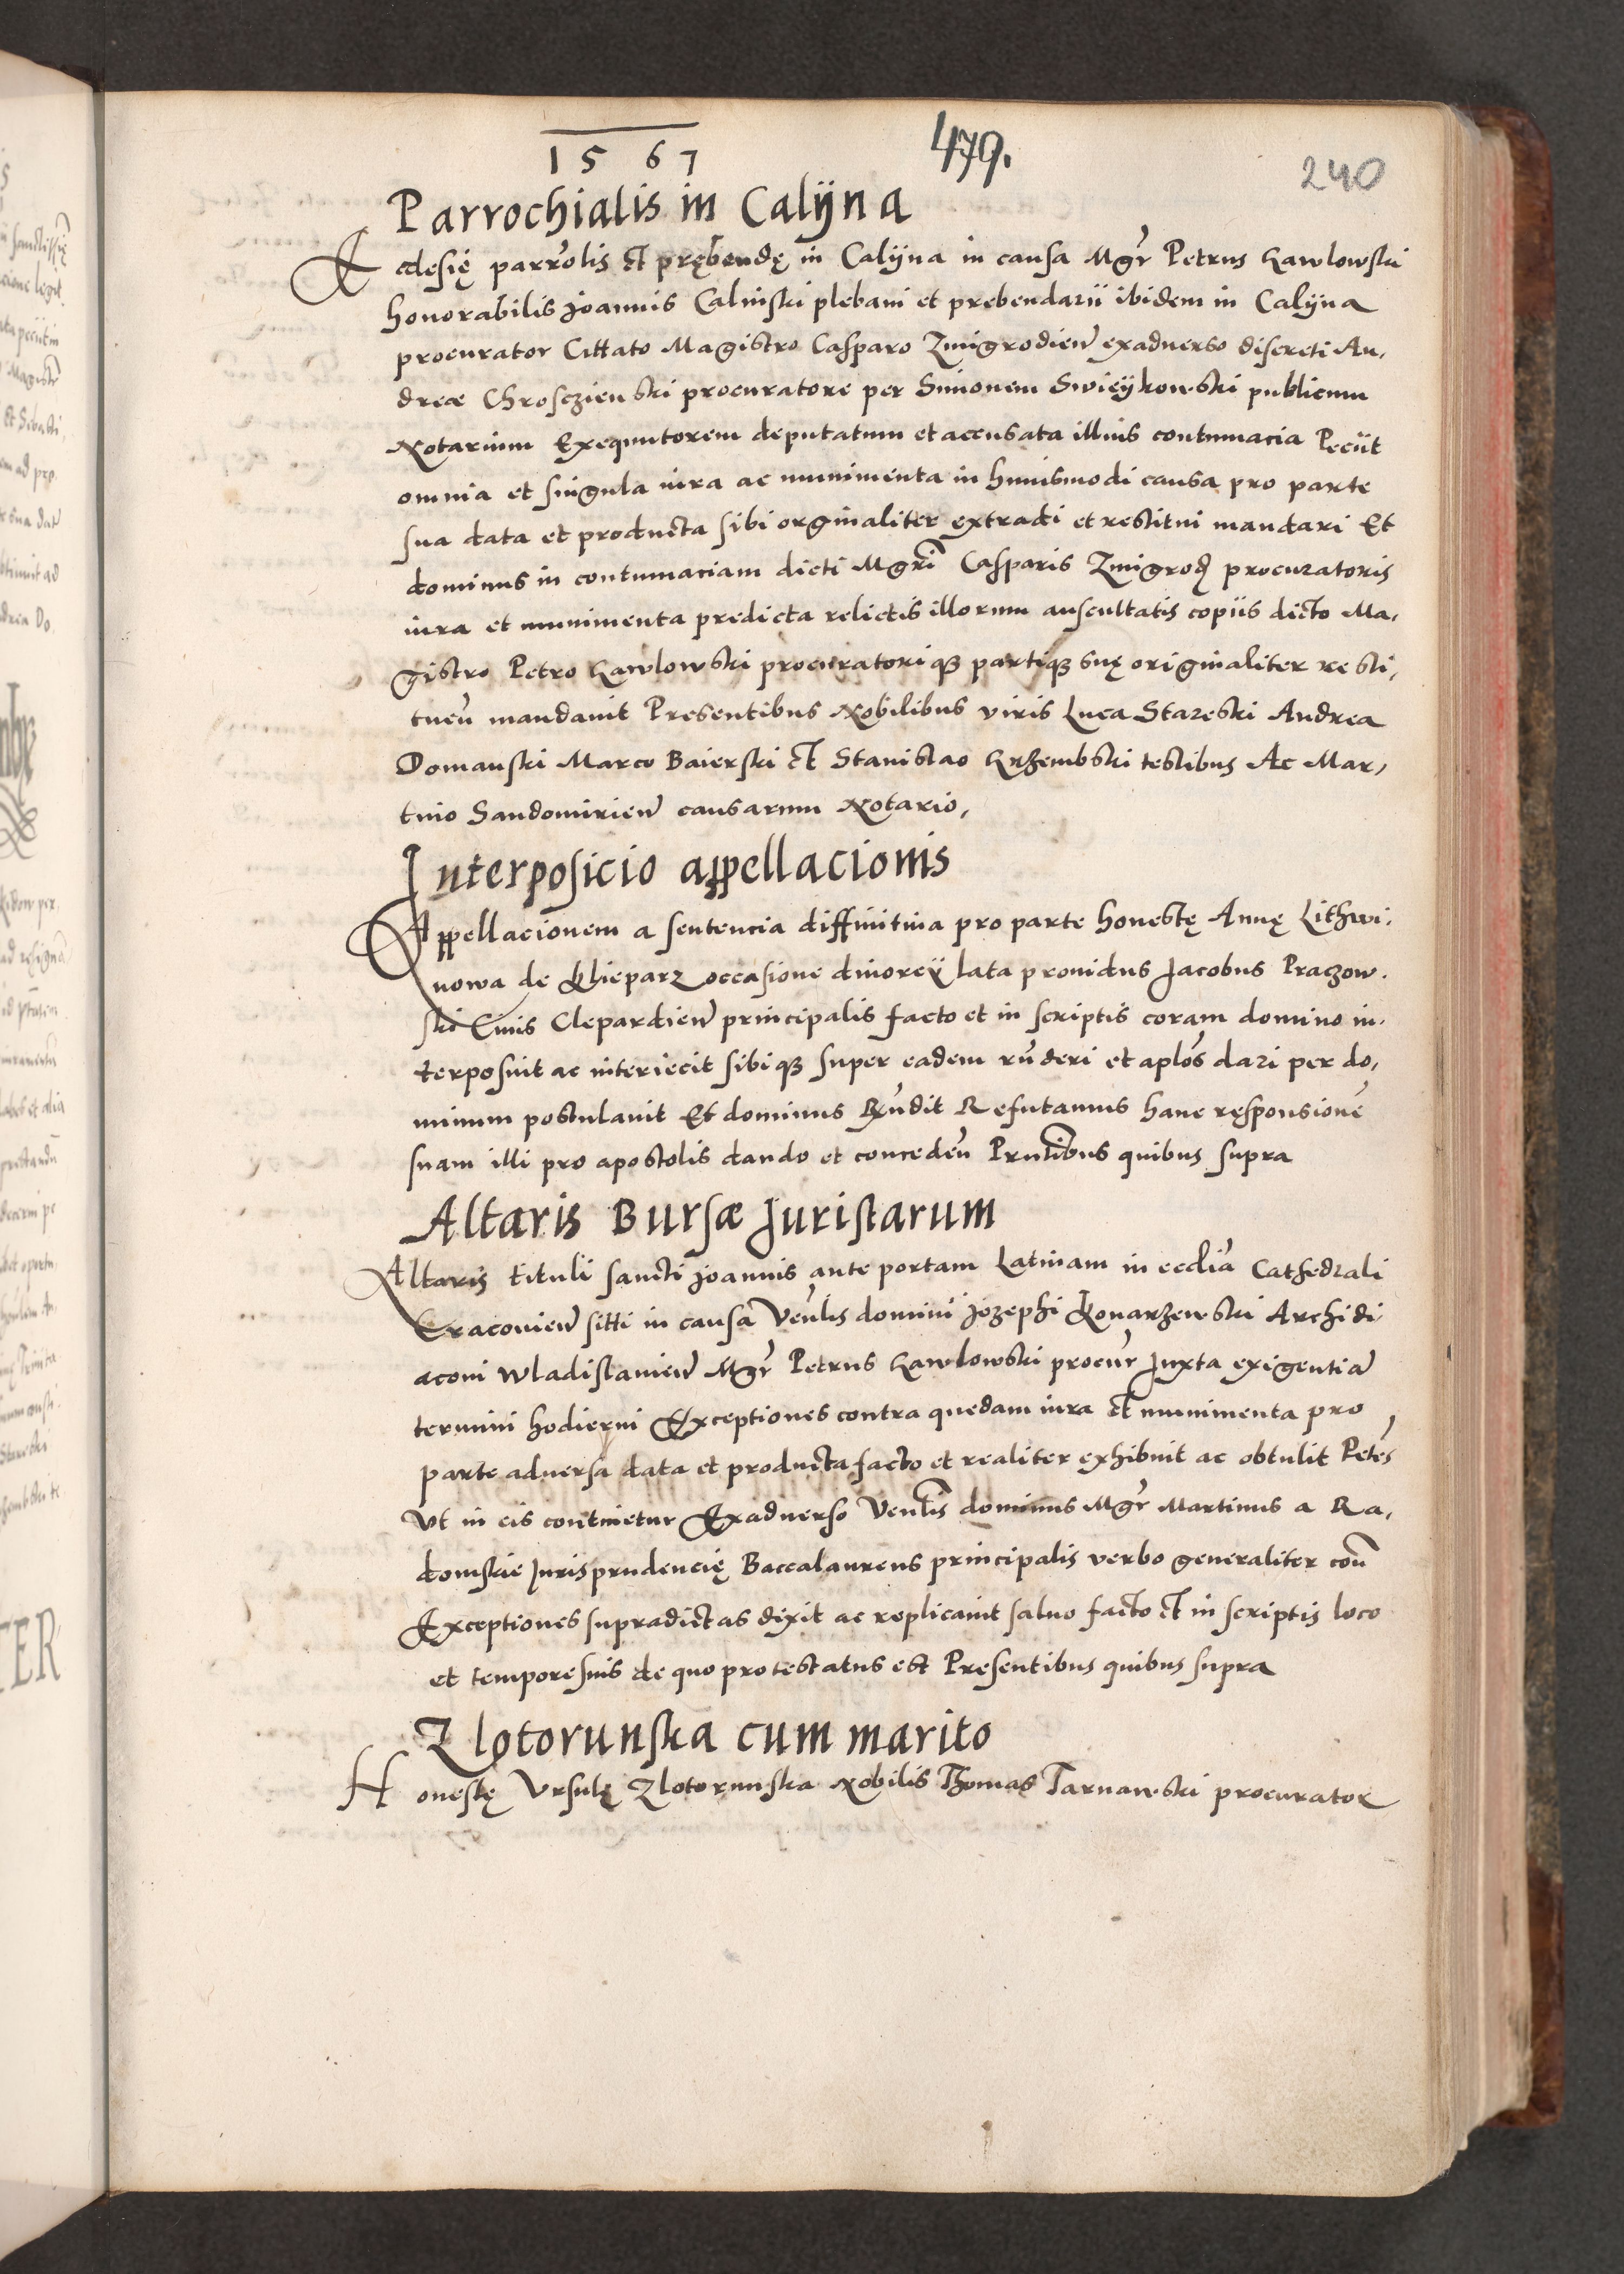 1567
479.
240
Parrochialis in Calijna
Ecclesię parrolis et prębendę in Calijna in causa Mgr Petrus Gawlowski
honorabilis Joannis Calinski plebani et prebendarii ibidem in Calijna
procurator Cittato Magistro Casparo Zmigrodien exaduerso discreti An,
dreæ Chrosczienski procuratore per Simonem Swieykowski publicum
Notarium Exequutorem deputatum et accusata illius contumacia Peciit
omnia et singula iura ac munimenta in huiusmodi causa pro parte
sua data et producta sibi orginaliter extradi et restitui mandari Et
dominus in contumaciam dicti Mgri Casparis Zmigrod procuratoris
iura et munimenta predicta relictis illorum auscultatis copiis dicto Ma,
gistro Petro Gawlowski procuratorique partique suę originaliter resti,
tuen mandauit Presentibus Nobilibus viris Luca Stareski Andrea
Domanski Marco Baierski et Stanislao Krzembski testibus Ac Mar,
tino Sandomirien causarum Notario,
Interposicio appellacionis
Appellacionem a sentencia diffinitiua pro parte honestę Annę Lithwi,
nowa de Klieparz occasione diuorcij lata prouidus Jacobus Praczow,
ski Ciuis Clepardien principalis facto et in scriptis coram domino in,
terposuit ac interiecit sibique super eadem runderi et aplos dari per do,
minum postulauit Et dominus Rundit Refutamus hanc ręsponsione
suam illi pro apostolis dando et conceden Pruntibus quibus supra
Altaris Bursæ Juristarum
Altaris tituli sancti Joannis ante portam Latinam in ecclia Cathedrali
Cracouien sitti in causa Venlis domini Jozephi Konarzewski Archidi,
aconi Wladislauien Mgr Petrus Gawlowski procur Juxta exigentia
termini hodierni Exceptiones contra quedam iura et munimenta pro
parte aduersa data et producta facto et realiter exhibuit ac obtulit Petes
Vt in eis continetur Exaduerso Venlis dominus Mgr Martinus a Ra,
domskie Jurisprudencię Baccalaureus principalis verbo generaliter con
Exceptiones supradictas dixit ac replicauit saluo facto et in scriptis loco
et tempore suis de quo protestatus est Presentibus quibus supra
Zlotorunska cum marito
Honestę Vrsulę Zlotorunska Nobilis Thomas Tarnawski procurator